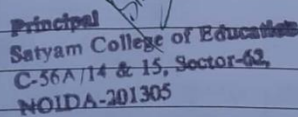 Principal
Satyam College of Education
C-56A/14 & 15, Sector-62,
NOIDA-201305